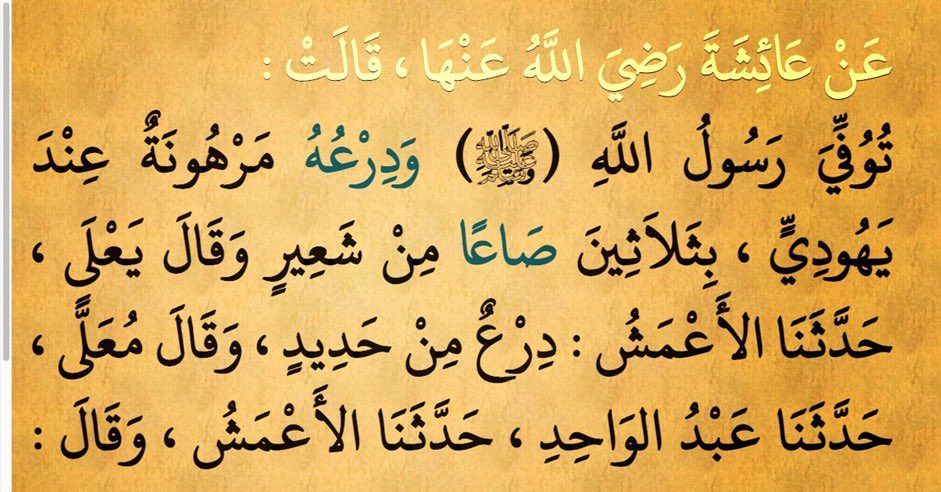 عَنْ عَائِشَةَ رَضِيَ اللَّهُ عَنْهَا ، قَالَتْ :
تُوُفِّيَ رَسُولُ اللَّهِ (ﷺ) وَدِرْعُهُ مَرْهُونَةٌ عِنْدَ
يَهُودِيٍّ ، بِثَلاَثِينَ صَاعًا مِنْ شَعِيرٍ وَقَالَ يَعْلَى ،
حَدَّثَنَا الأَعْمَشُ : دِرْعٌ مِنْ حَدِيدٍ ، وَقَالَ مُعَلًّى ،
حَدَّثَنَا عَبْدُ الوَاحِدِ ، حَدَّثَنَا الأَعْمَشُ ، وَقَالَ :